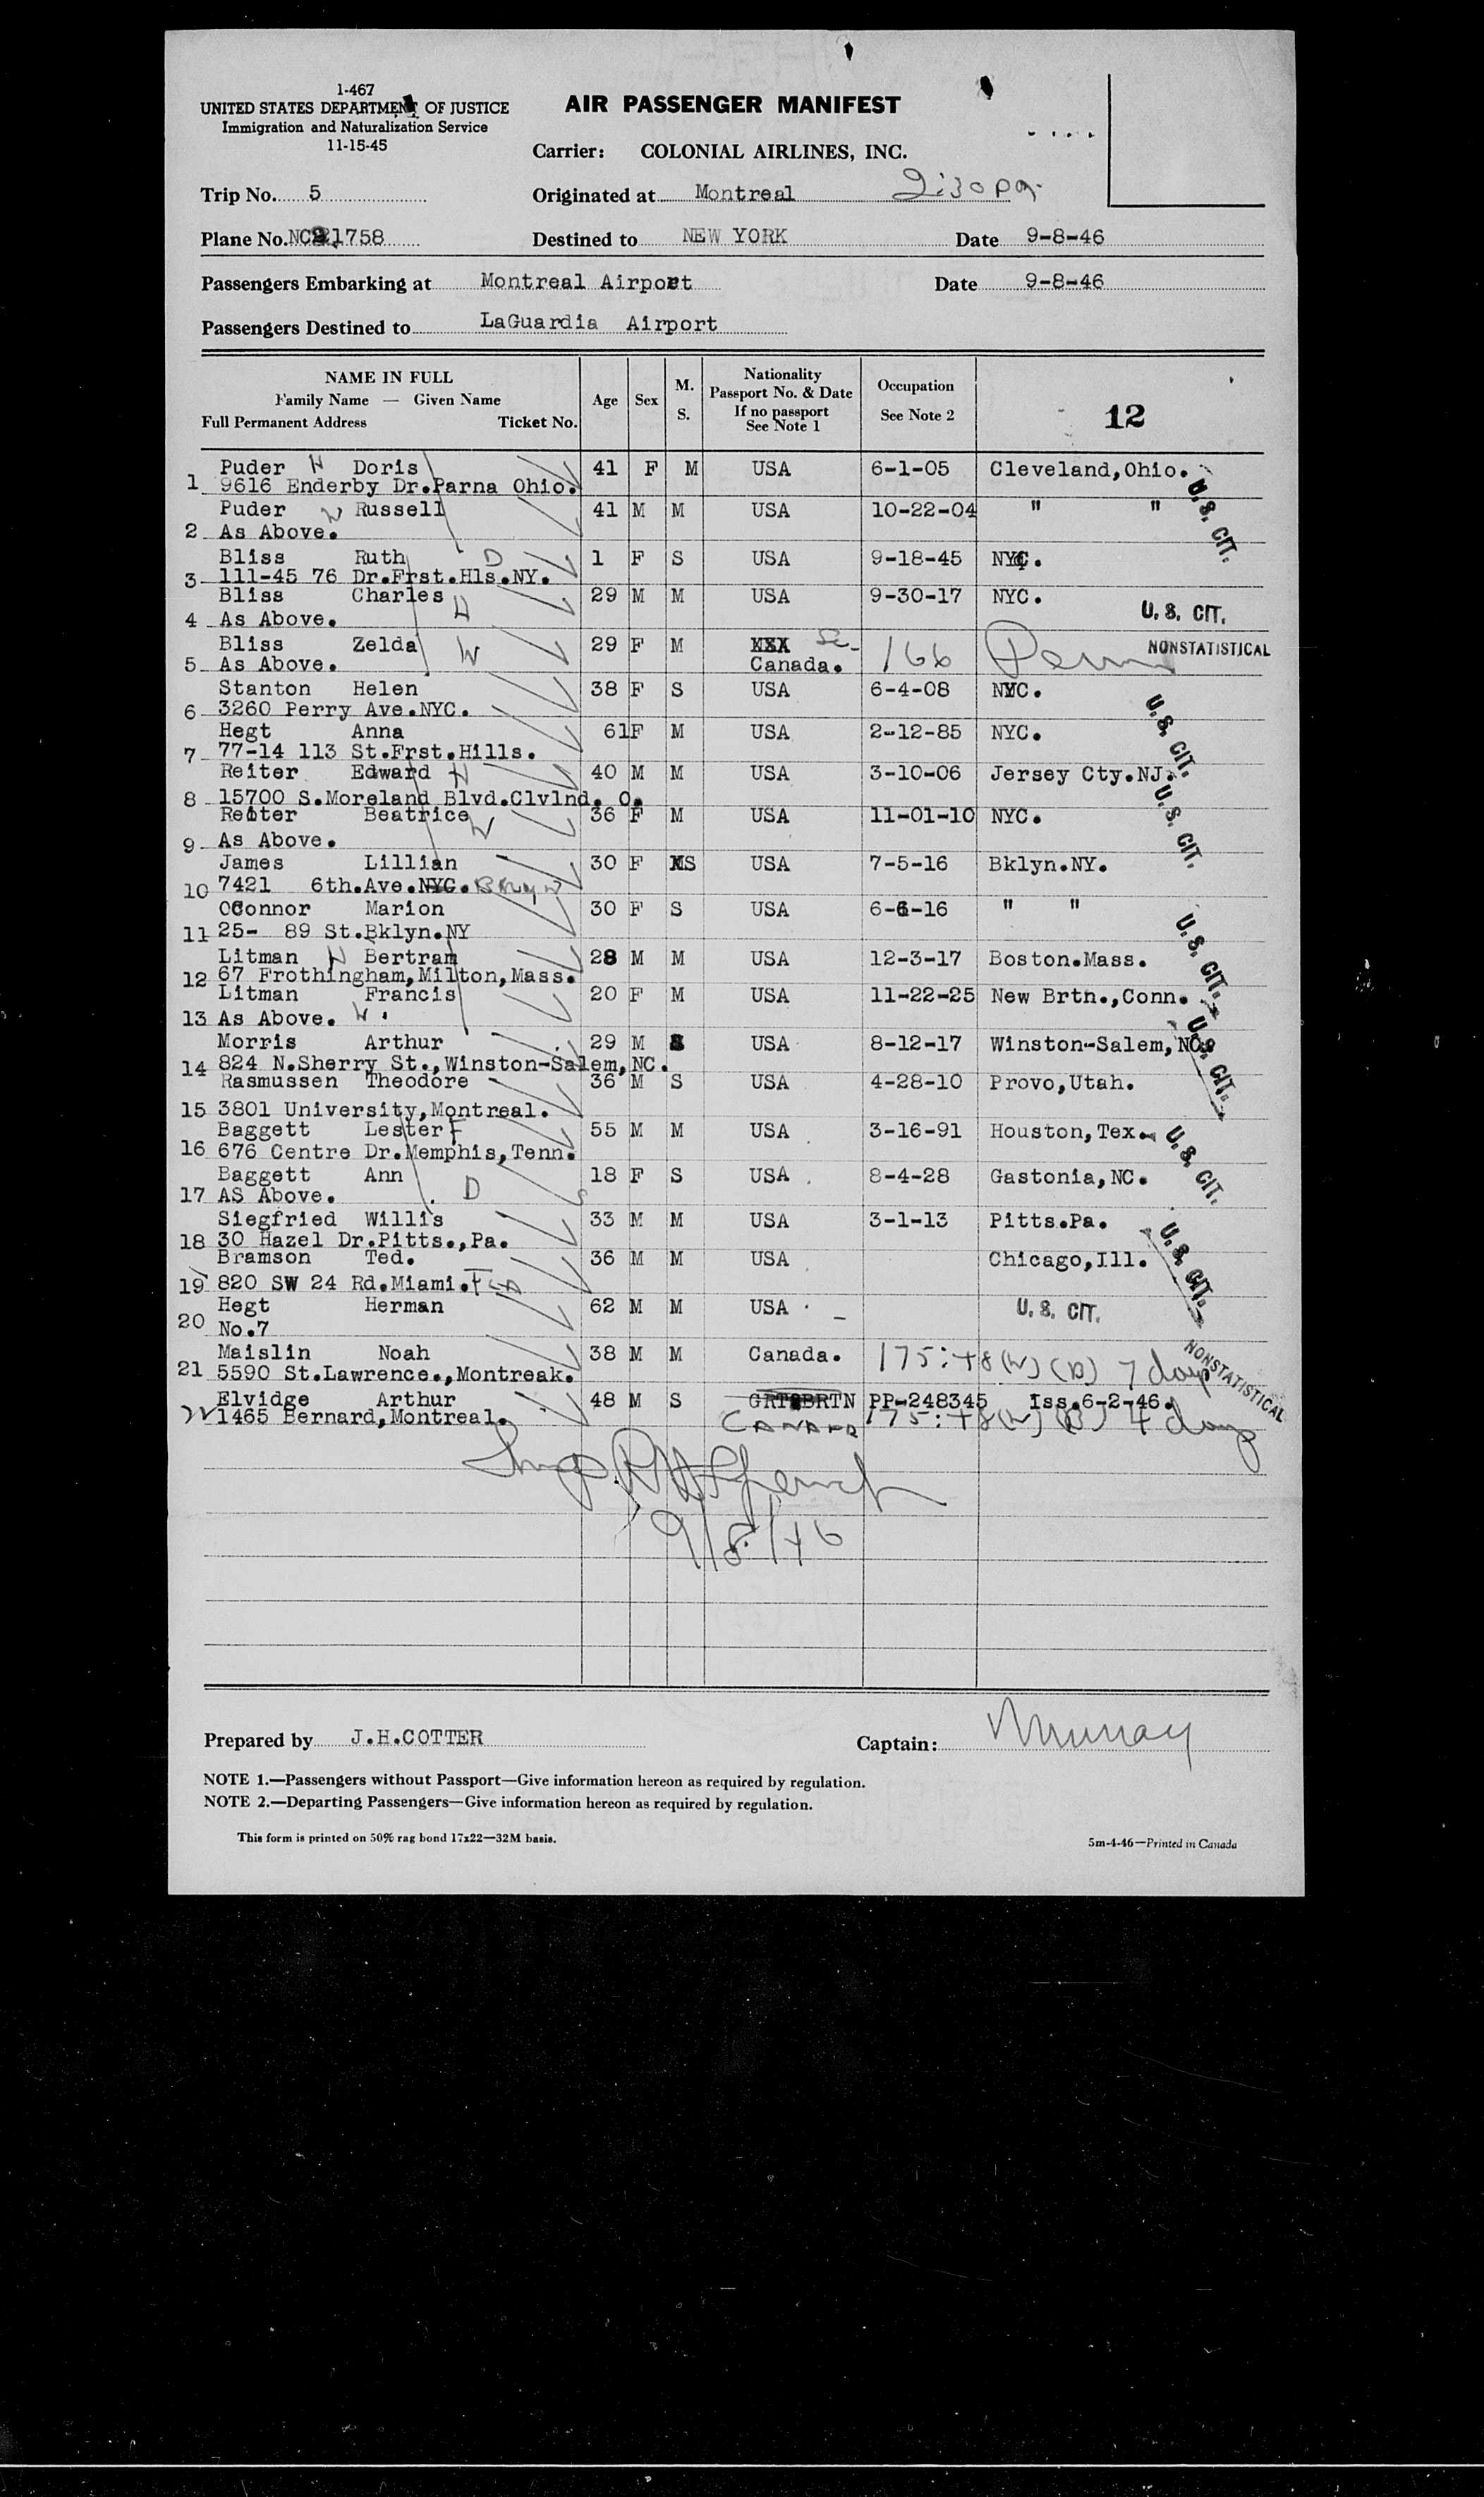 1-467
UNITED STATES DEPARTMENT OF JUSTICE
Immigration and Naturalization Service
11-15-45
AIR PASSENGER MANIFEST
Carrier: COLONIAL AIRLINES, INC.
Trip No. 5 Originated at Montreal 2:30 pm
Plane No. NC21758 Destined to NEW YORK Date 9-8-46
Passengers Embarking at Montreal Airport Date 9-8-46
Passengers Destined to LaGuardia Airport
NAME IN FULL
Family Name — Given Name
Full Permanent Address Ticket No.
Age Sex M. S.
Nationality
Passport No. & Date
If no passport
See Note 1
Occupation
See Note 2
12
Puder H Doris 41 F M USA 6-1-05 Cleveland,Ohio.
1 9616 Enderby Dr.Parna Ohio.
U. S. CIT.
Puder W Russell 41 M M USA 10-22-04 " "
2 As Above.
Bliss Ruth D 1 F S USA 9-18-45 NYC.
3 111-45 76 Dr.Frst.Hls.NY.
Bliss Charles H 29 M M USA 9-30-17 NYC.
4 As Above. U. S. CIT.
Bliss Zelda W 29 F M XXX 166 NONSTATISTICAL
5 As Above. Canada.
Stanton Helen 38 F S USA 6-4-08 NYC.
6 3260 Perry Ave.NYC.
U. S. CIT.
Hegt Anna 61 F M USA 2-12-85 NYC.
7 77-14 113 St.Frst.Hills.
Reiter Edward H 40 M M USA 3-10-06 Jersey Cty.NJ.
8 15700 S.Moreland Blvd.Clvlnd. O.
U. S. CIT.
Reiter Beatrice W 36 F M USA 11-01-10 NYC.
9 As Above.
James Lillian 30 F XS USA 7-5-16 Bklyn.NY.
10 7421 6th.Ave.NYC. Bklyn
OConnor Marion 30 F S USA 6-6-16 " "
11 25- 89 St.Bklyn.NY
U. S. CIT.
Litman H Bertram 28 M M USA 12-3-17 Boston.Mass.
12 67 Frothingham,Milton,Mass.
Litman Francis 20 F M USA 11-22-25 New Brtn.,Conn.
13 As Above. W.
U. S. CIT.
Morris Arthur 29 M USA 8-12-17 Winston-Salem,NC.
14 824 N.Sherry St.,Winston-Salem,NC.
Rasmussen Theodore 36 M S USA 4-28-10 Provo,Utah.
15 3801 University,Montreal.
Baggett Lester F 55 M M USA 3-16-91 Houston,Tex.
16 676 Centre Dr.Memphis,Tenn.
U. S. CIT.
Baggett Ann D 18 F S USA 8-4-28 Gastonia,NC.
17 AS Above.
Siegfried Willis 33 M M USA 3-1-13 Pitts.Pa.
18 30 Hazel Dr.Pitts.,Pa.
U. S. CIT.
Bramson Ted. 36 M M USA Chicago,Ill.
19 820 SW 24 Rd.Miami. Fla
Hegt Herman 62 M M USA U. S. CIT.
20 No.7
Maislin Noah 38 M M Canada. 175:48(W) (B) 7 days
21 5590 St.Lawrence.,Montreak.
NONSTATISTICAL
Elvidge Arthur 48 M S GRTBRTN PP-248345 Iss.6-2-46.
22 1465 Bernard,Montreal. CANADA 175:48(W) (B) 4 days
9/8/46
Prepared by J.H.COTTER Captain: Murray
NOTE 1.—Passengers without Passport—Give information hereon as required by regulation.
NOTE 2.—Departing Passengers—Give information hereon as required by regulation.
This form is printed on 50% rag bond 17x22—32M basis. 5m-4-46—Printed in Canada